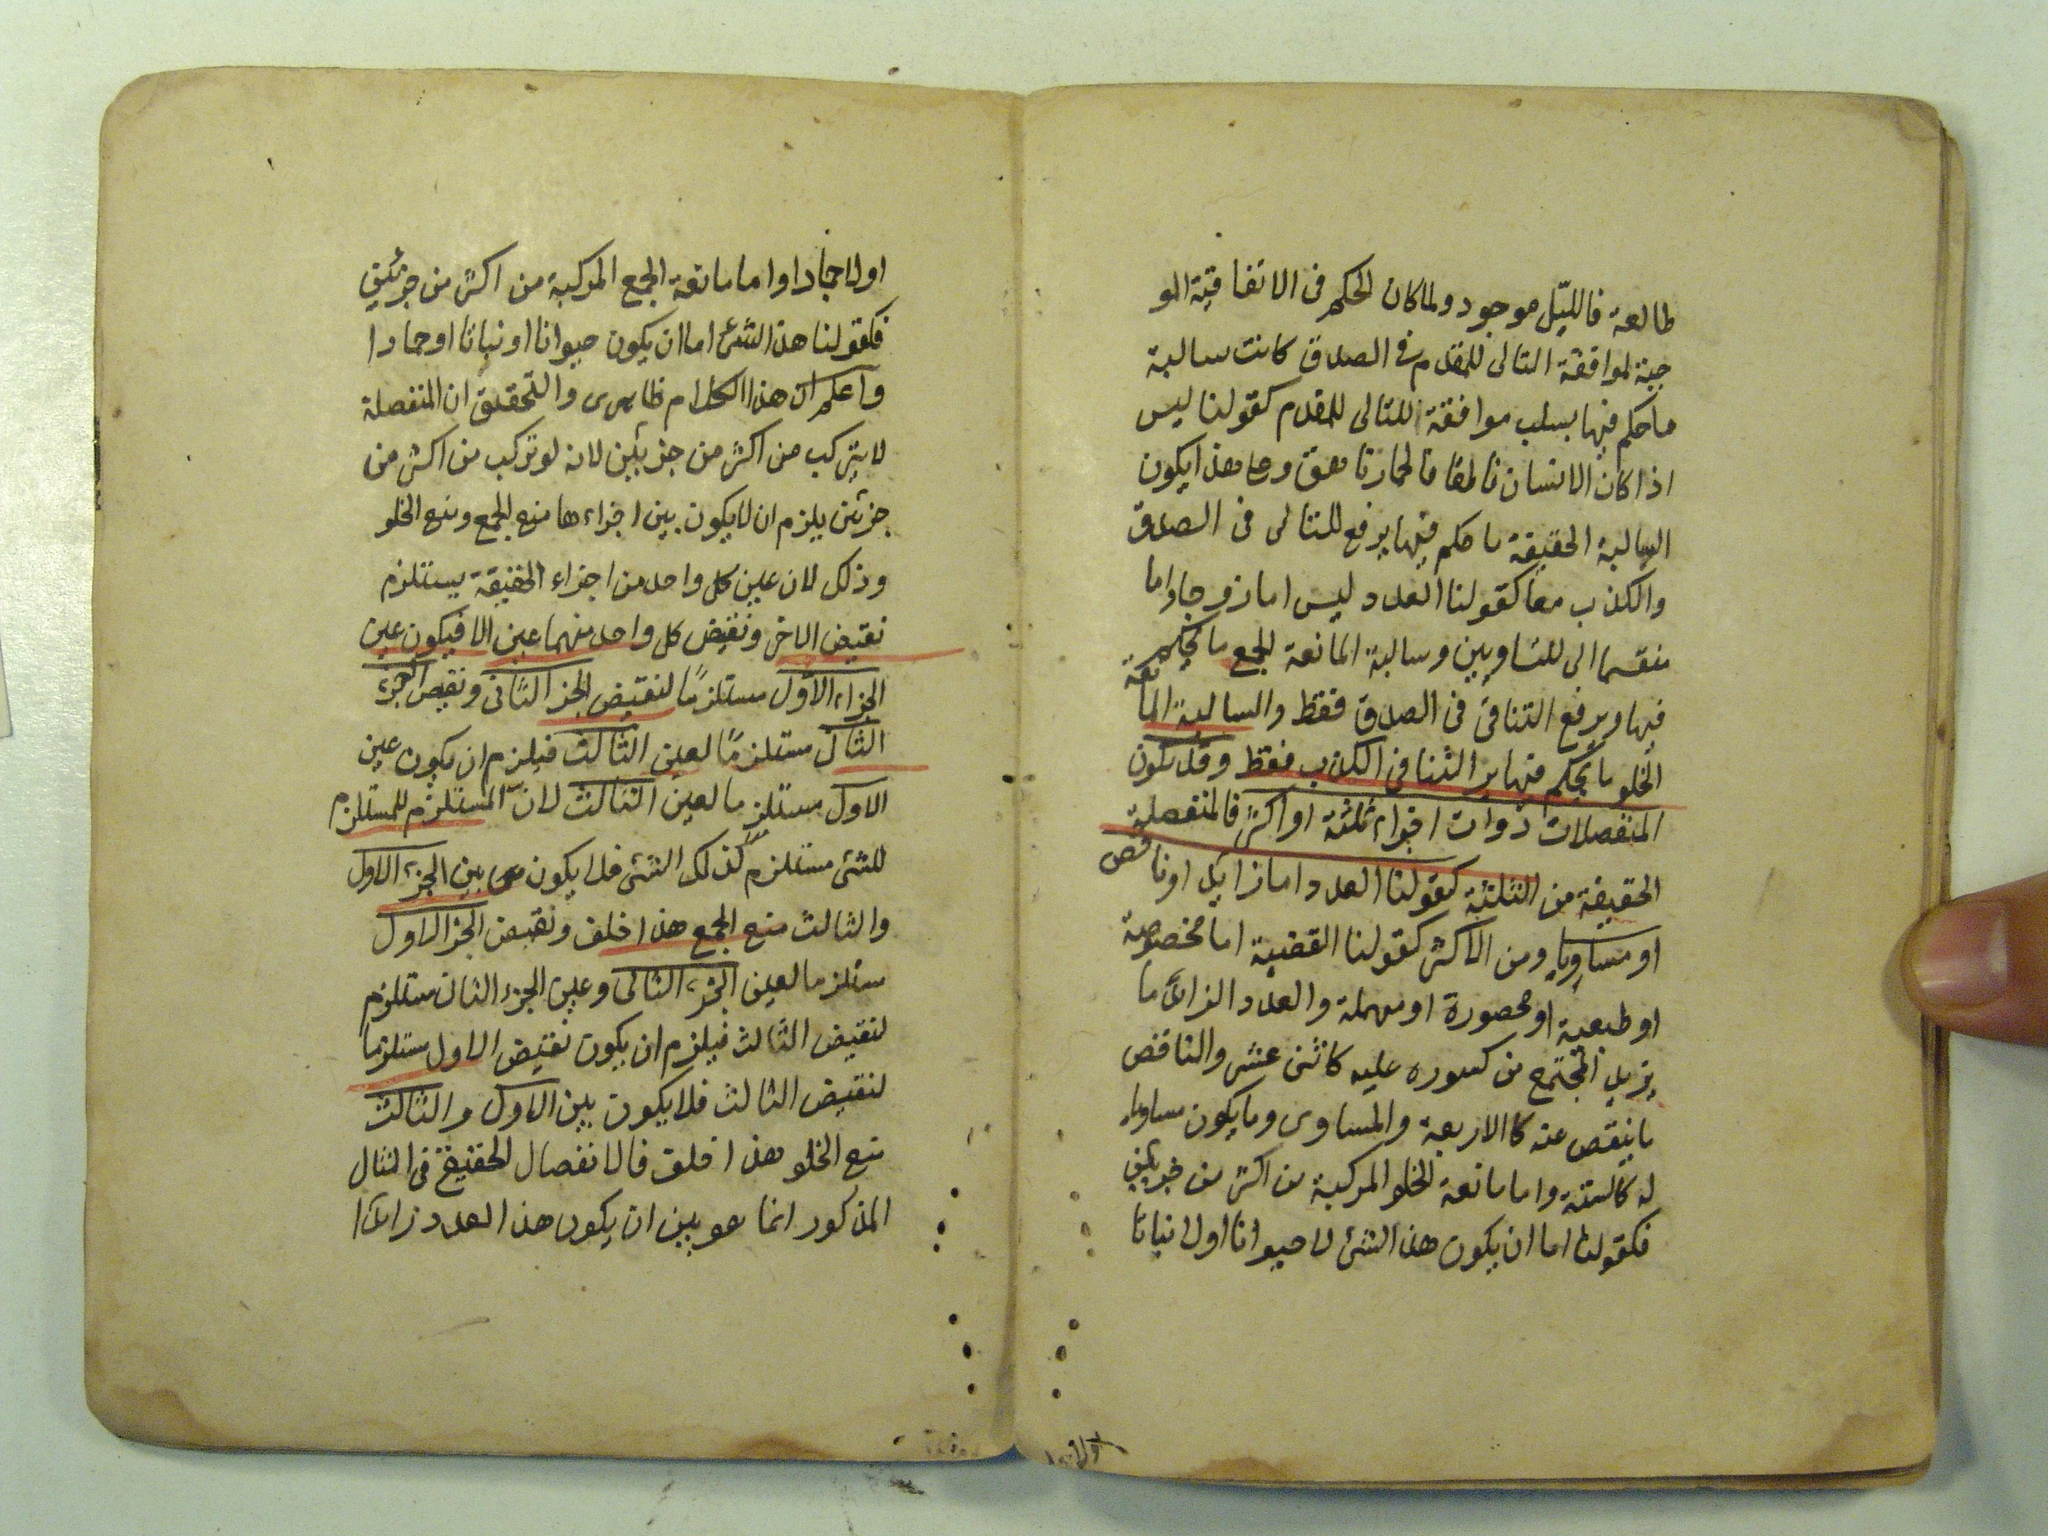 طالعة فالليل موجود ولما كان الحكم فى الاتفاقية المو
جبة لموافقة التالى للمقدم فى الصدق كانت سالبة
ما حكم فيها بسلب موافقة التالى للمقدم كقولنا ليس
اذا كان الانسان ناطقا فالحمار ناهق وعلى هذا يكون
السالبة الحقيقة ما حكم فيها برفع للتنافى فى الصدق
والكذب معا كقولنا العدد ليس اما زوجا واما
منقسما الى المتساويين وسالبة المانعة الجمع ما يحكم
فيها وبرفع التنافى فى الصدق فقط والسالبة المانعة
الخلو ما يحكم فيها بر التنافى الكذب فقط وقد تكون
المنفصلات ذوات اجزاء ثلثة او اكثر فالمنفصلة
الحقيقة من الثلثة كقولنا العدد اما زايد او ناقص
او مساويا ومن الاكثر كقولنا القضية اما مخصوصة
او طبعية او محصورة او مهملة والعدد الزائد ما
يزيد المجتمع من كسوره عليه كاثنى عشر والناقص
ما ينقص عنه كالاربعة والمساوى وما يكون مساويا
له كالستة واما مانعة الخلو المركبة من اكثر من جزئين
فكقولنا اما ان يكون هذا الشئ لا حيوانا او لا نباتا
او لا جمادا واما مانعة الجمع المركبة من اكثر من جزئين
فكقولنا هذا الشئ اما ان يكون حيوانا او نباتا او جمادا
واعلم ان هذا الكلام ظاهرى والتحقيق ان المنفصلة
لا يتركب من اكثر من جزئين لانه لو تركب من اكثر من
جزئين يلزم ان لا يكون بين اجزاءها منع الجمع ومنع الخلو
وذلك لان عين كل واحد من اجزاء الحقيقة يستلزم
نقيض الاخر ونقيض كل واحد منهما عين الا فيكون عين
الجزاء الاول مستلزمًا لنقيض الجز الثانى ونقيض الجزء
الثانى مستلزمًا لعين الثالث فيلزم ان يكون عين
الاول مستلزما لعين الثالث لان المستلزم للمستلزم
للشئ مستلزم لذلك الشئ فلا يكون بين الجزء الاول
والثالث منع الجمع هذا خلف ونقيض الجز الاول
مستلزما لعين الجزء الثانى وعين الجزء الثانى مستلزم
لنقيض الثالث فيلزم ان يكون نقيض الاول مستلزما
لنقيض الثالث فلا يكون بين الاول والثالث
منع الخلو هذا خلف فالانفصال الحقيقة فى المثال
المذكور انما هو بين ان يكون هذا العدد زائدا